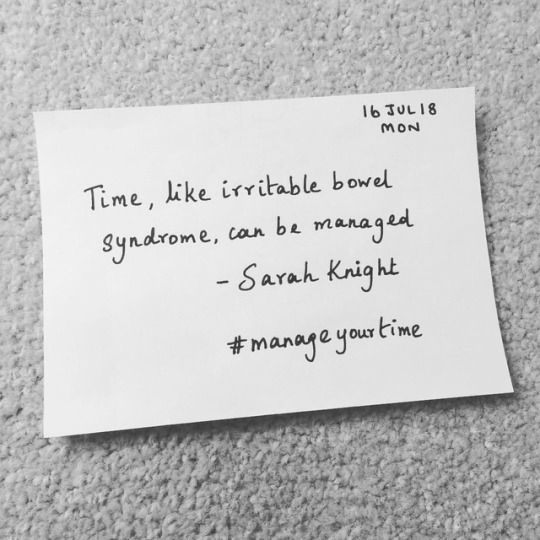 16 JUL 18
MON
Time, like irritable bowel
syndrome, can be managed
- Sarah Knight
#manageyourtime